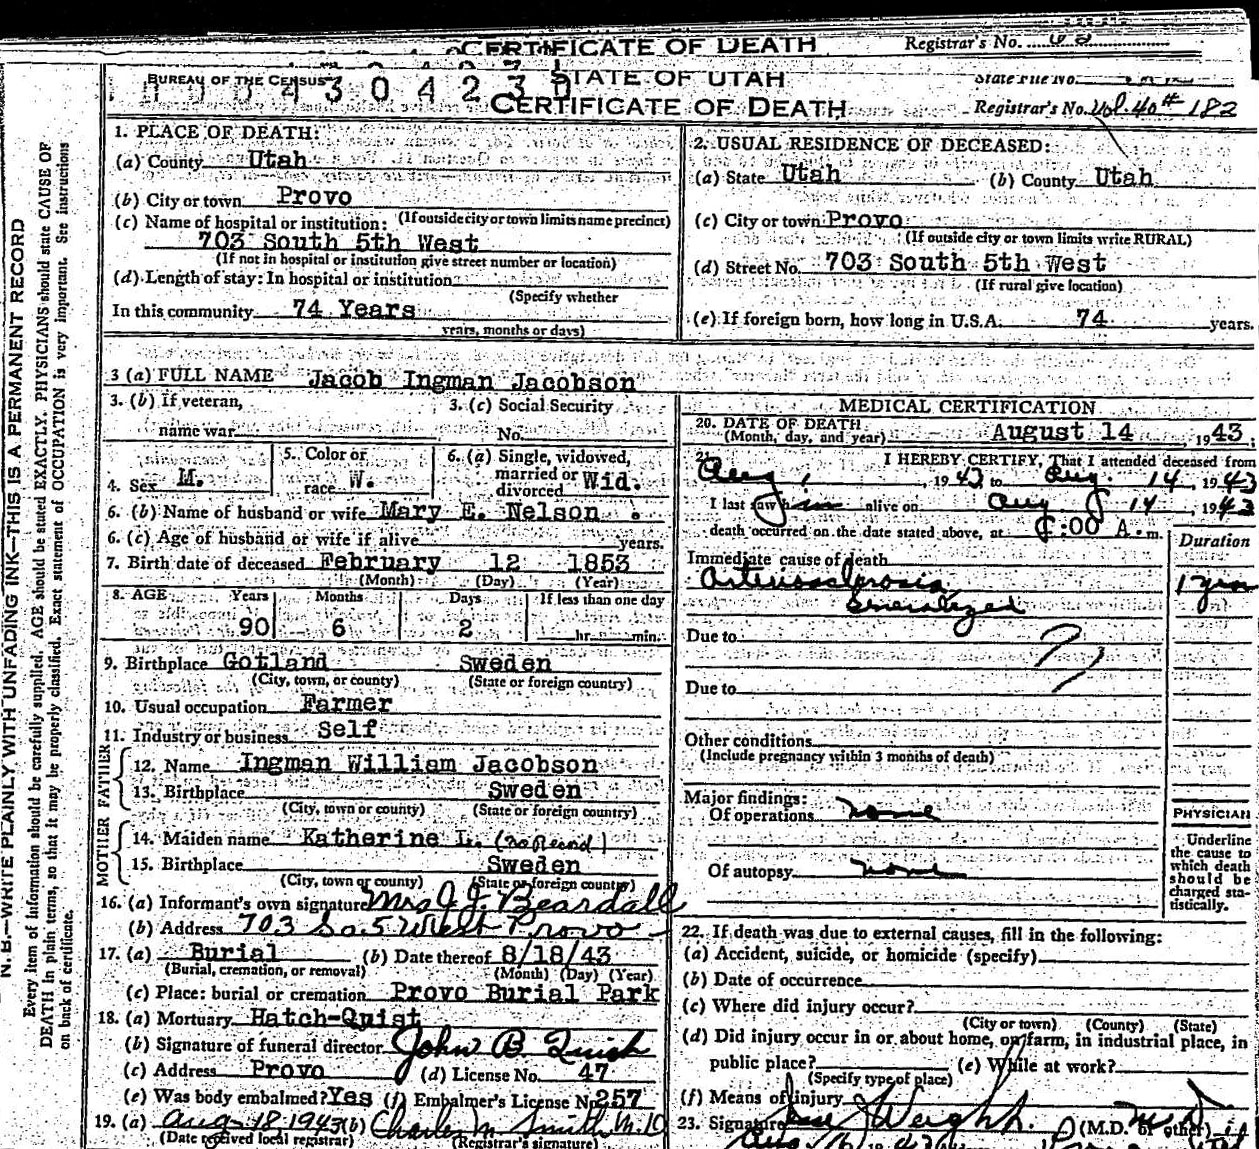 CERTIFICATE OF DEATH Registrar's No.
BUREAU OF THE CENSUS STATE OF UTAH State File No.
30423
CERTIFICATE OF DEATH Registrar's No. Vol. 40 # 182
N. B.—WRITE PLAINLY WITH UNFADING INK—THIS IS A PERMANENT RECORD
Every item of information should be carefully supplied. AGE should be stated EXACTLY. PHYSICIANS should state CAUSE OF
DEATH in plain terms, so that it may be properly classified. Exact statement of OCCUPATION is very important. See instructions
on back of certificate.
1. PLACE OF DEATH:
(a) County Utah
(b) City or town Provo
(If outside city or town limits name precinct)
(c) Name of hospital or institution:
703 South 5th West
(If not in hospital or institution give street number or location)
(d) Length of stay: In hospital or institution
(Specify whether
In this community 74 Years
years, months or days)
2. USUAL RESIDENCE OF DECEASED:
(a) State Utah (b) County Utah
(c) City or town Provo
(If outside city or town limits write RURAL)
(d) Street No. 703 South 5th West
(If rural give location)
(e) If foreign born, how long in U.S.A. 74 years.
3 (a) FULL NAME Jacob Ingman Jacobson
3. (b) If veteran, 3. (c) Social Security
name war No.
4. Sex M. 5. Color or race W. 6. (a) Single, widowed, married or divorced Wid.
6. (b) Name of husband or wife Mary E. Nelson
6. (c) Age of husband or wife if alive years.
7. Birth date of deceased February 12 1853
(Month) (Day) (Year)
8. AGE Years Months Days If less than one day
90 6 2 hr. min.
9. Birthplace Gotland Sweden
(City, town, or county) (State or foreign country)
10. Usual occupation Farmer
11. Industry or business Self
FATHER
12. Name Ingman William Jacobson
13. Birthplace Sweden
(City, town or county) (State or foreign country)
MOTHER
14. Maiden name Katherine L. (no Record)
15. Birthplace Sweden
(City, town or county) (State or foreign country)
16. (a) Informant's own signature Mrs J. J. Beardall
(b) Address 703 So. 5 West Provo
17. (a) Burial (b) Date thereof 8/18/43
(Burial, cremation, or removal) (Month) (Day) (Year)
(c) Place: burial or cremation Provo Burial Park
18. (a) Mortuary Hatch-Quist
(b) Signature of funeral director John B. Quish
(c) Address Provo (d) License No. 47
(e) Was body embalmed? Yes (f) Embalmer's License No. 257
19. (a) Aug. 18. 1943 (b) Charles M. Smith M.D
(Date received local registrar) (Registrar's signature)
MEDICAL CERTIFICATION
20. DATE OF DEATH
(Month, day, and year) August 14, 1943.
21. I HEREBY CERTIFY, That I attended deceased from
Aug 1, 1943 to Aug. 14, 1943
I last saw him alive on Aug 14, 1943
death occurred on the date stated above, at :00 A.m.
Duration
Immediate cause of death
Arteriosclerosis 1 year
Generalized
Due to
Due to
Other conditions
(Include pregnancy within 3 months of death)
Major findings:
Of operations none
Of autopsy none
PHYSICIAN
Underline
the cause to
which death
should be
charged sta-
tistically.
22. If death was due to external causes, fill in the following:
(a) Accident, suicide, or homicide (specify)
(b) Date of occurrence
(c) Where did injury occur?
(City or town) (County) (State)
(d) Did injury occur in or about home, on farm, in industrial place, in
public place? (e) While at work?
(Specify type of place)
(f) Means of injury
23. Signature (M.D. or other)